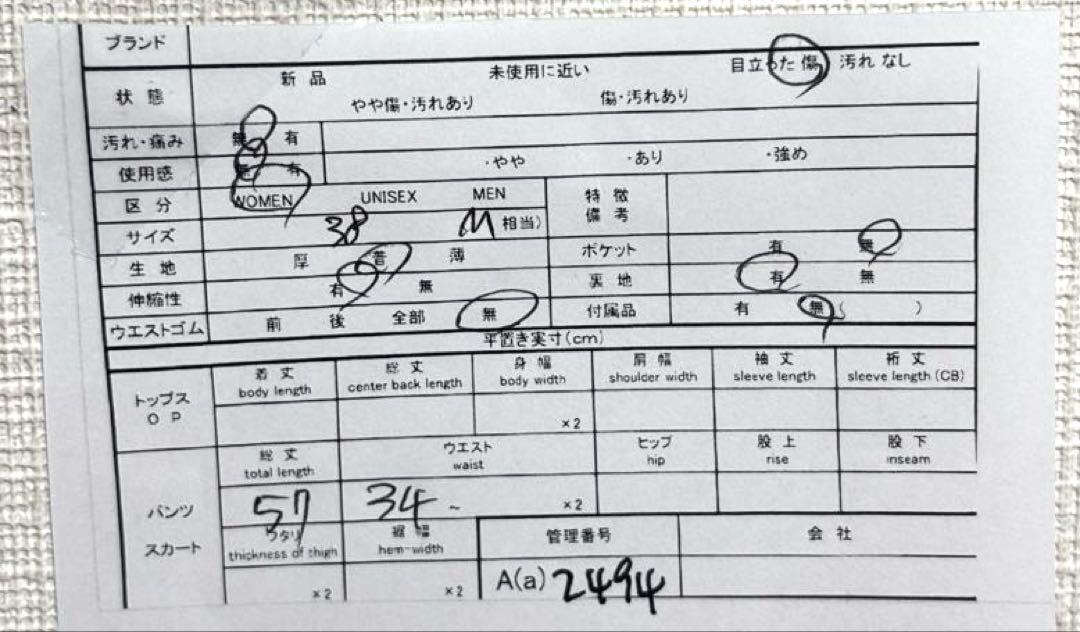 ブランド
状態 新品 未使用に近い 目立った傷 汚れ なし
やや傷・汚れあり 傷・汚れあり
汚れ・痛み 無 有
使用感 無 有 ・やや ・あり ・強め
区分 WOMEN UNISEX MEN 特徴 備考
サイズ 38 M 相当)
生地 厚 普 薄 ポケット 有 無
伸縮性 有 無 裏地 有 無
ウエストゴム 前 後 全部 無 付属品 有 無( )
平置き実寸(cm)
トップス OP
着丈 総丈 身幅 肩幅 袖丈 裄丈
body length center back length body width shoulder width sleeve length sleeve length (CB)
×2
パンツ スカート
総丈 ウエスト ヒップ 股上 股下
total length waist hip rise inseam
57 34 ~ ×2
ワタリ 裾幅 管理番号 会社
thickness of thigh hem-width
×2 ×2 A(a) 2494